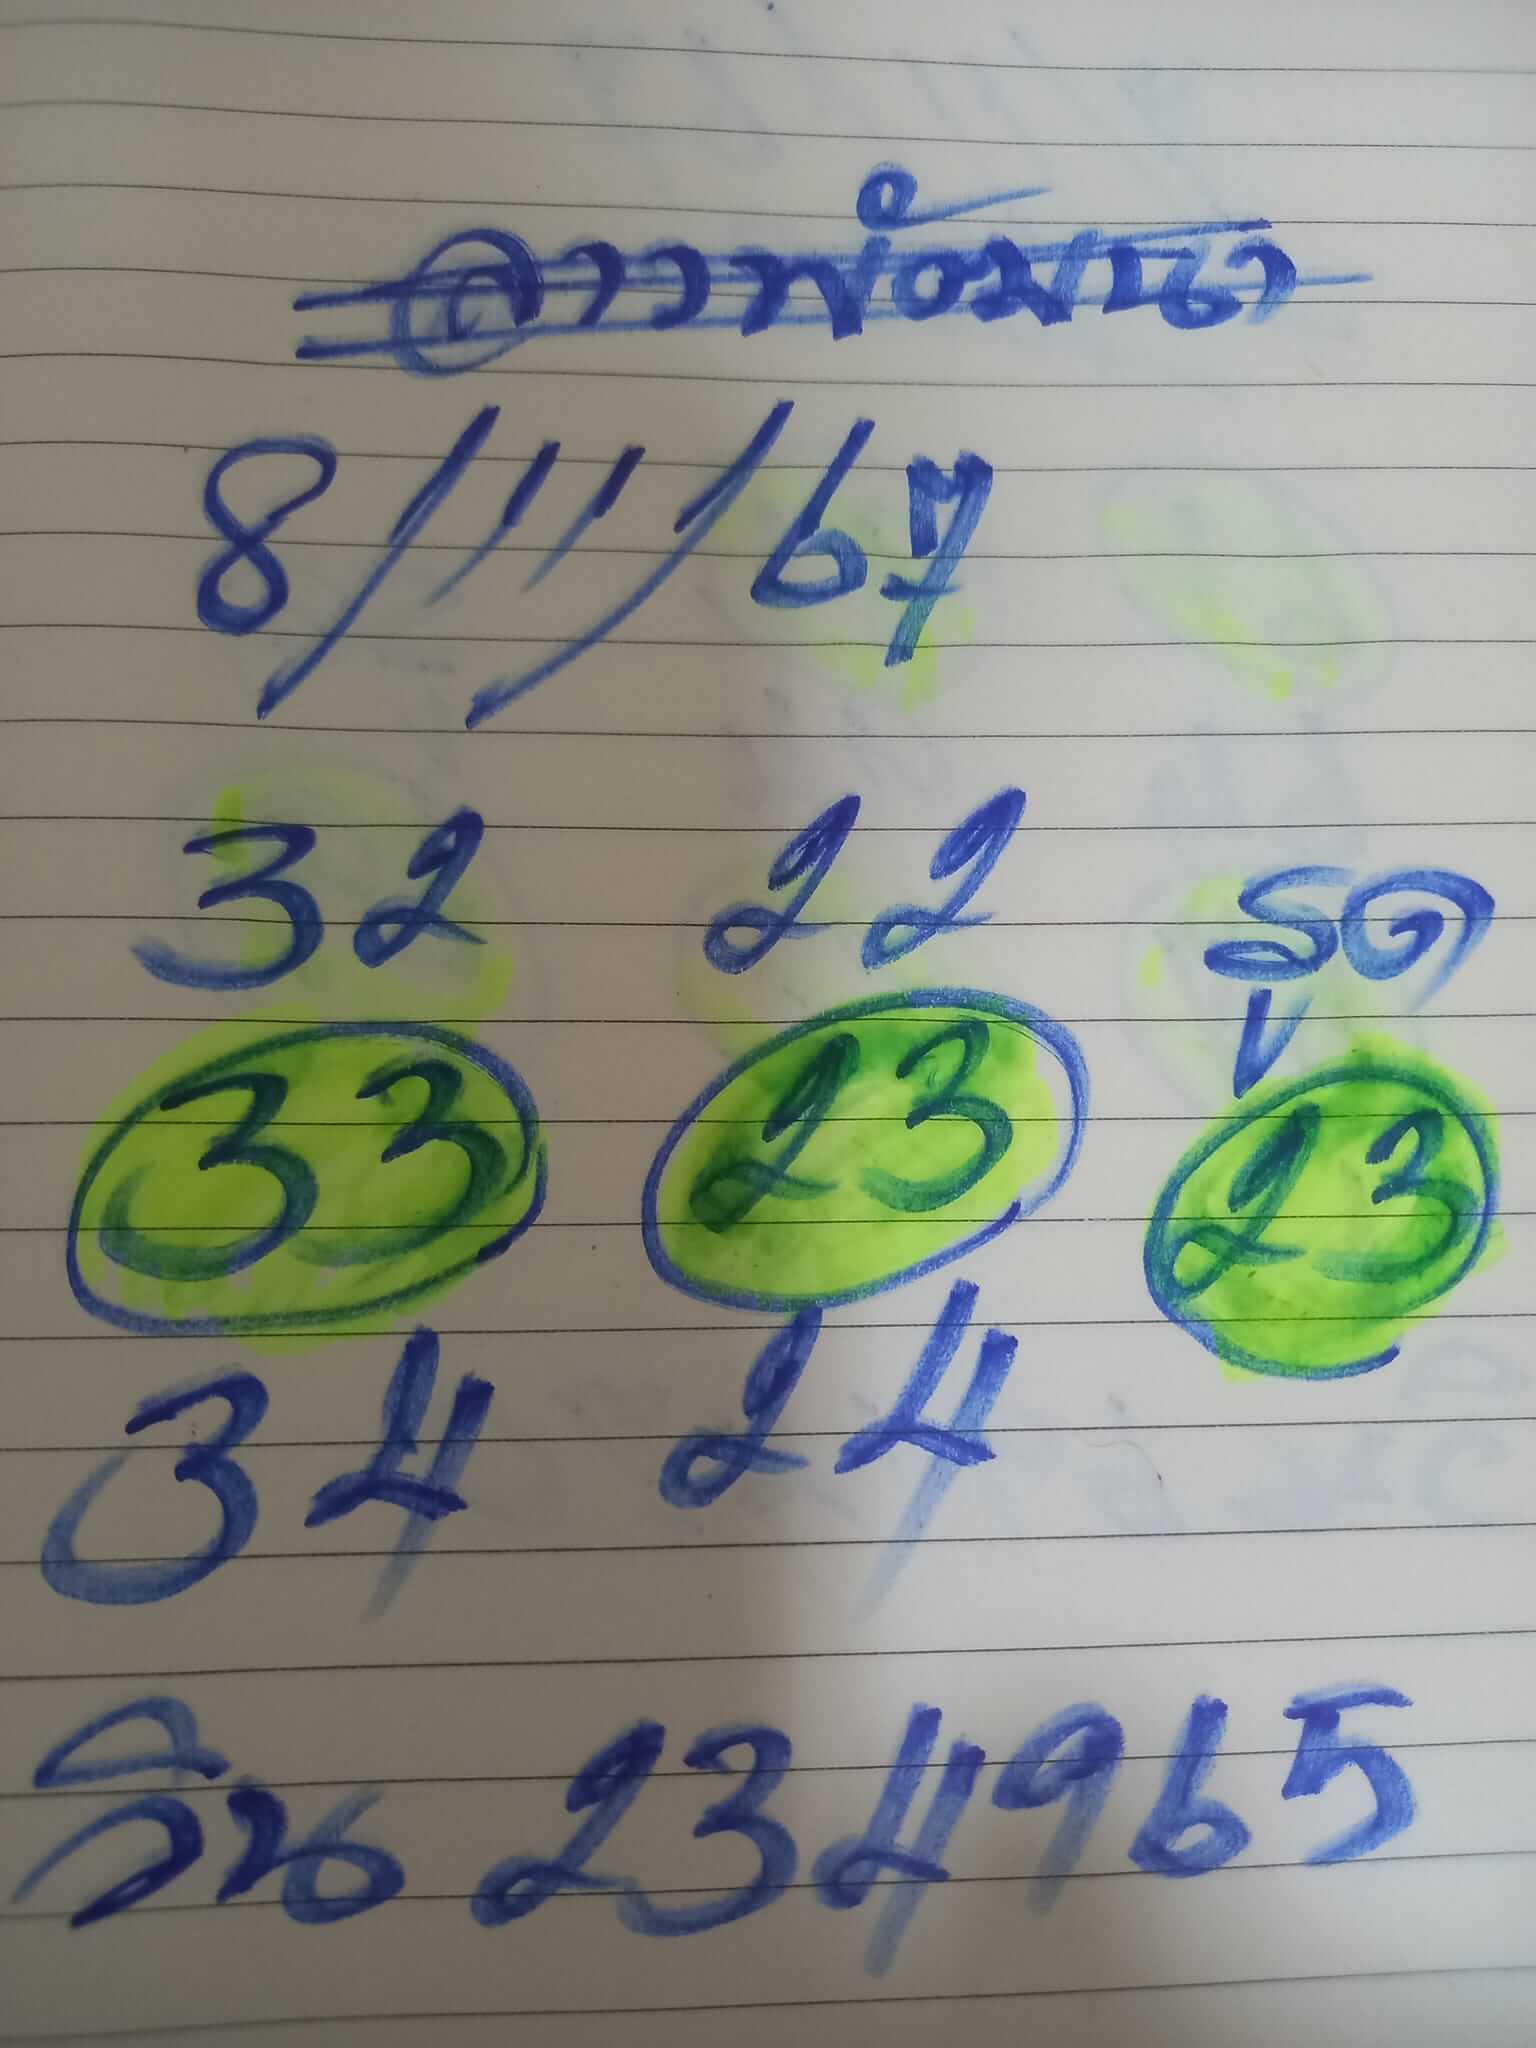 ลาวพัฒนา
8/11/67
32 22 รูด
33 23 23
34 24
วิน 234965